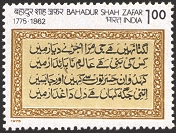 बहादुर शाह ज़फ़र BAHADUR SHAH ZAFAR 1.00
1775-1862 भारत INDIA
لگتا نہیں ہے جی مرا اجڑے دیار میں
کس کی بنی ہے عالم ناپائدار میں
کہدو ان حسرتوں سے کہیں اور جا بسیں
اتنی جگہ کہاں ہے دل داغدار میں
1975